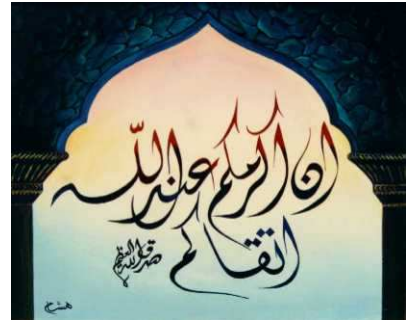 ان اكرمكم عند الله
اتقاكم
صدق الله العظيم